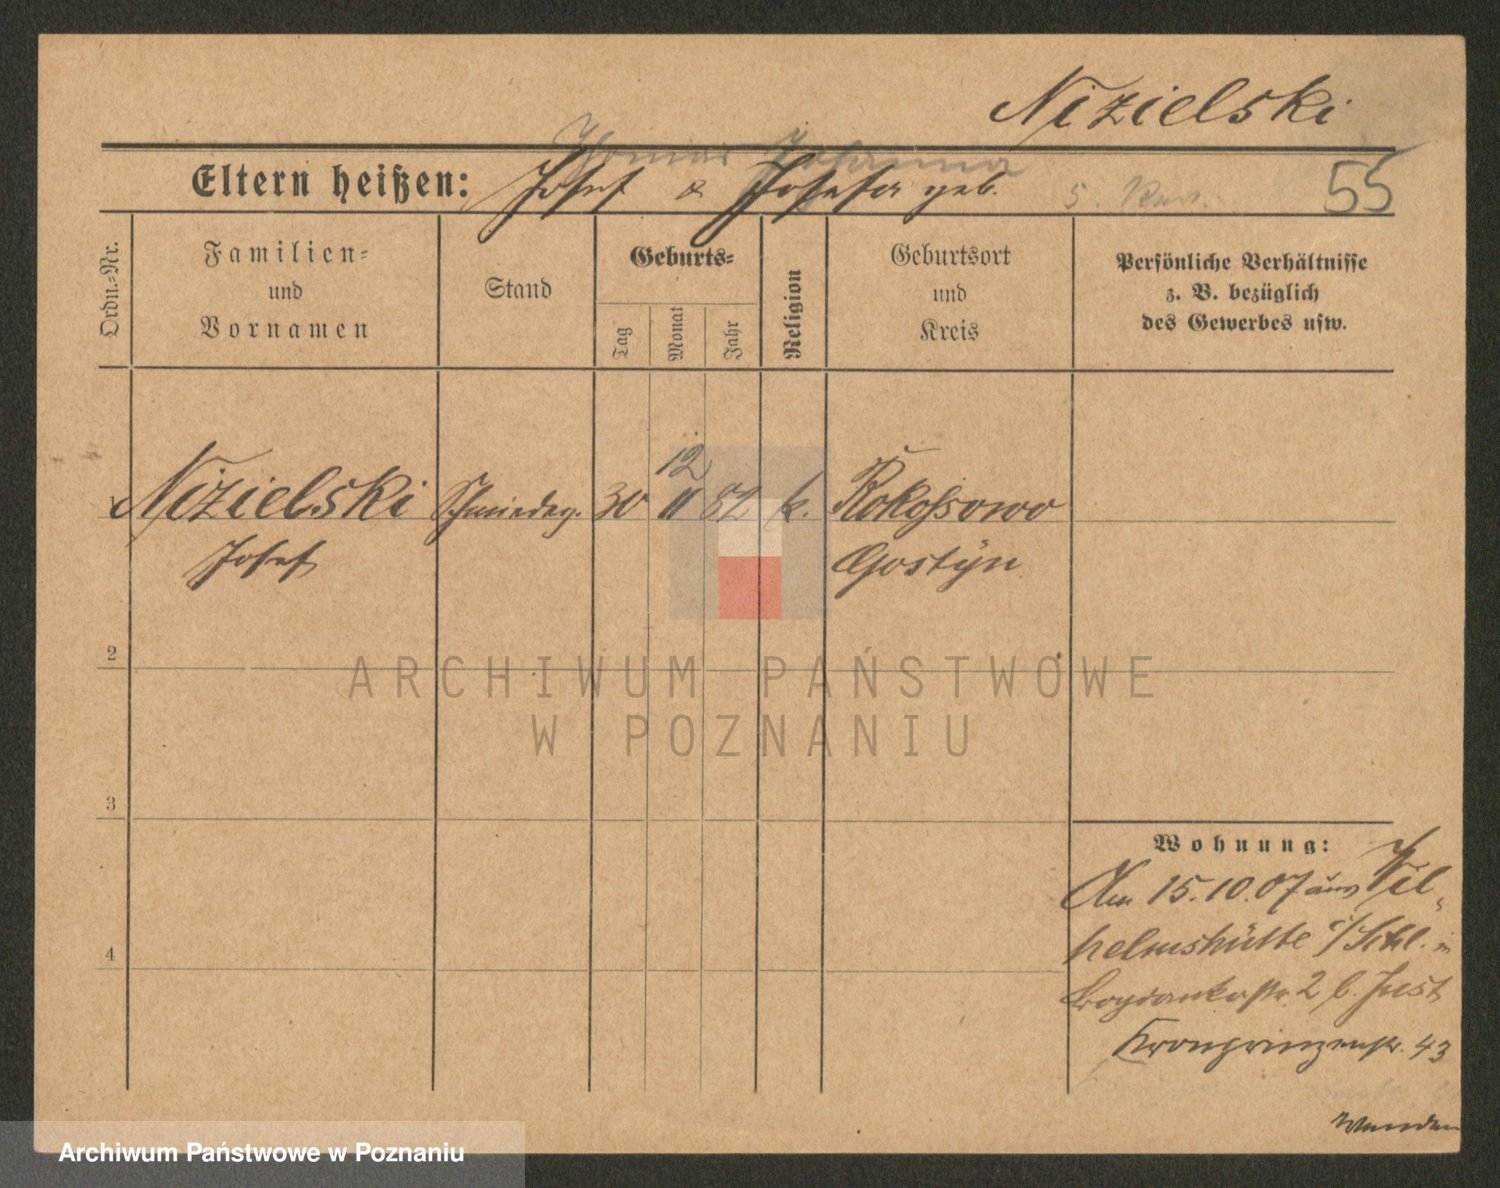 Nizielski
Thomas Johanna
Eltern heißen: Josef & Josefa geb.
55
Ordn.-Nr.
Familien-
und
Vornamen
Stand
Geburts-
Tag
Monat
Jahr
Religion
Geburtsort
und
Kreis
Persönliche Verhältnisse
z. B. bezüglich
des Gewerbes usw.
12
1 Nizielski Schmiedeg. 30 11 82 k. Rokossowo
Josef Gostÿn
2
3
4
Wohnung:
Am 15.10.07 aus Wil-
helmshütte i/Schl. in
Bogdankastr. 2 b. Just
Kronprinzenstr. 43
Wenden
ARCHIWUM PAŃSTWOWE
W POZNANIU
Archiwum Państwowe w Poznaniu